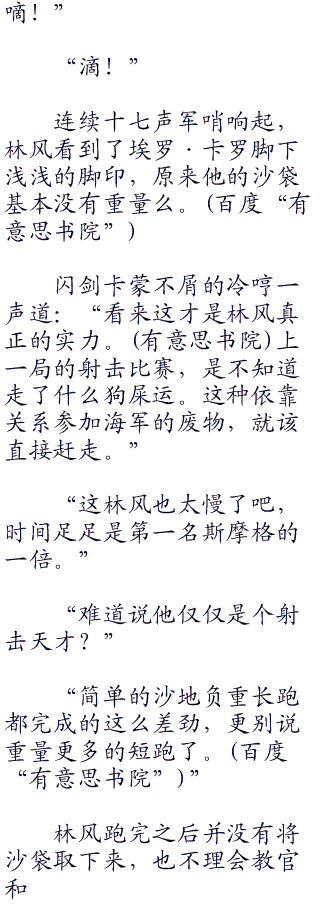 嘀！”
“滴！”
连续十七声军哨响起，
林风看到了埃罗·卡罗脚下
浅浅的脚印，原来他的沙袋
基本没有重量么。(百度“有
意思书院”)
闪剑卡蒙不屑的冷哼一
声道：“看来这才是林风真
正的实力。(有意思书院)上
一局的射击比赛，是不知道
走了什么狗屎运。这种依靠
关系参加海军的废物，就该
直接赶走。”
“这林风也太慢了吧，
时间足足是第一名斯摩格的
一倍。”
“难道说他仅仅是个射
击天才？”
“简单的沙地负重长跑
都完成的这么差劲，更别说
重量更多的短跑了。(百度
“有意思书院”)”
林风跑完之后并没有将
沙袋取下来，也不理会教官
和